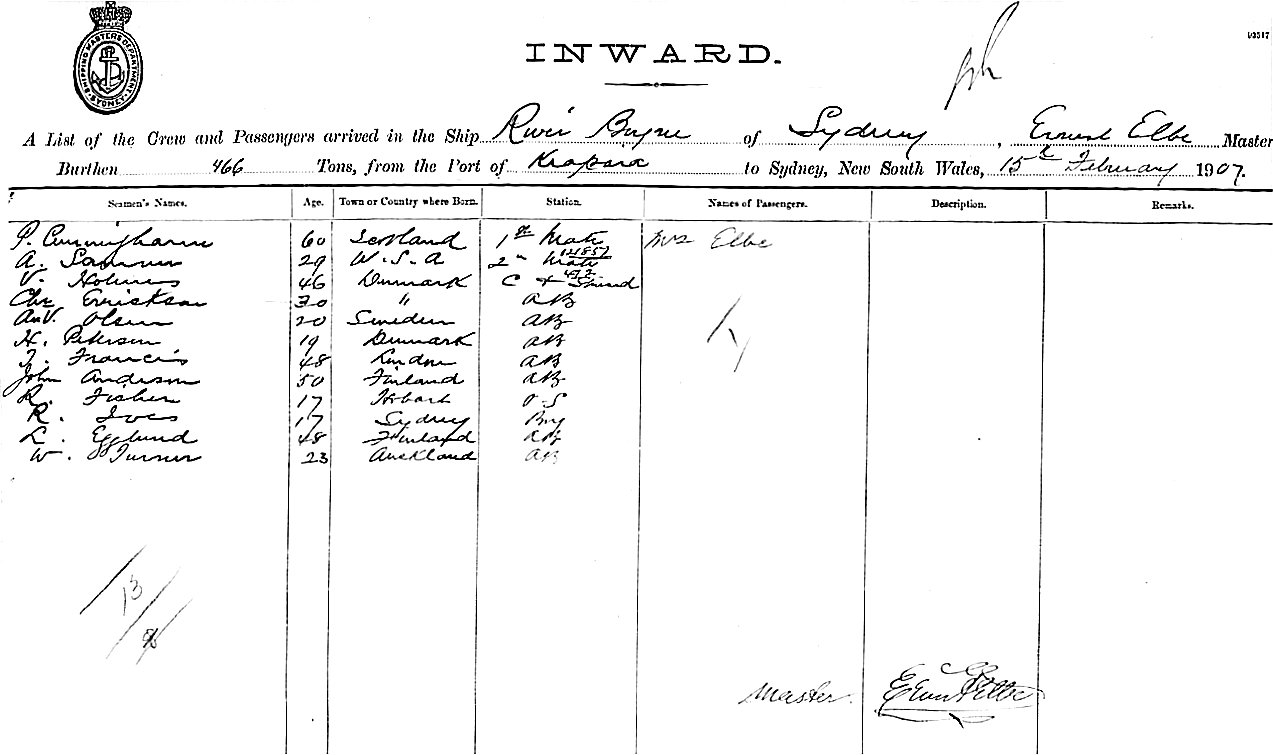 SHIPPING MASTERS DEPARTMENT
SYDNEY
INWARD.
A List of the Crew and Passengers arrived in the Ship River Boyne of Sydney, Ernest Elbe Master
Burthen 466 Tons, from the Port of to Sydney, New South Wales, 15th February 1907.
Seamen's Names. Age. Town or Country where Born. Station. Names of Passengers. Description. Remarks.
P. Cunningham 60 Scotland 1st Mate Mrs Elbe
A. 29 U.S.A 2nd Mate
V. Holmes 46 Denmark C &
Chr Errickson 30 " AB
Olsen 20 Sweden AB
H. Peterson 19 Denmark AB
Francis 48 London AB
John Anderson 50 Finland AB
R. Fisher 17 Hobart O.S
R. Ives 17 Sydney Boy
L. Egglund 48 Finland AB
W. Turner 23 Auckland AB
1
13
Master. Ernest Elbe